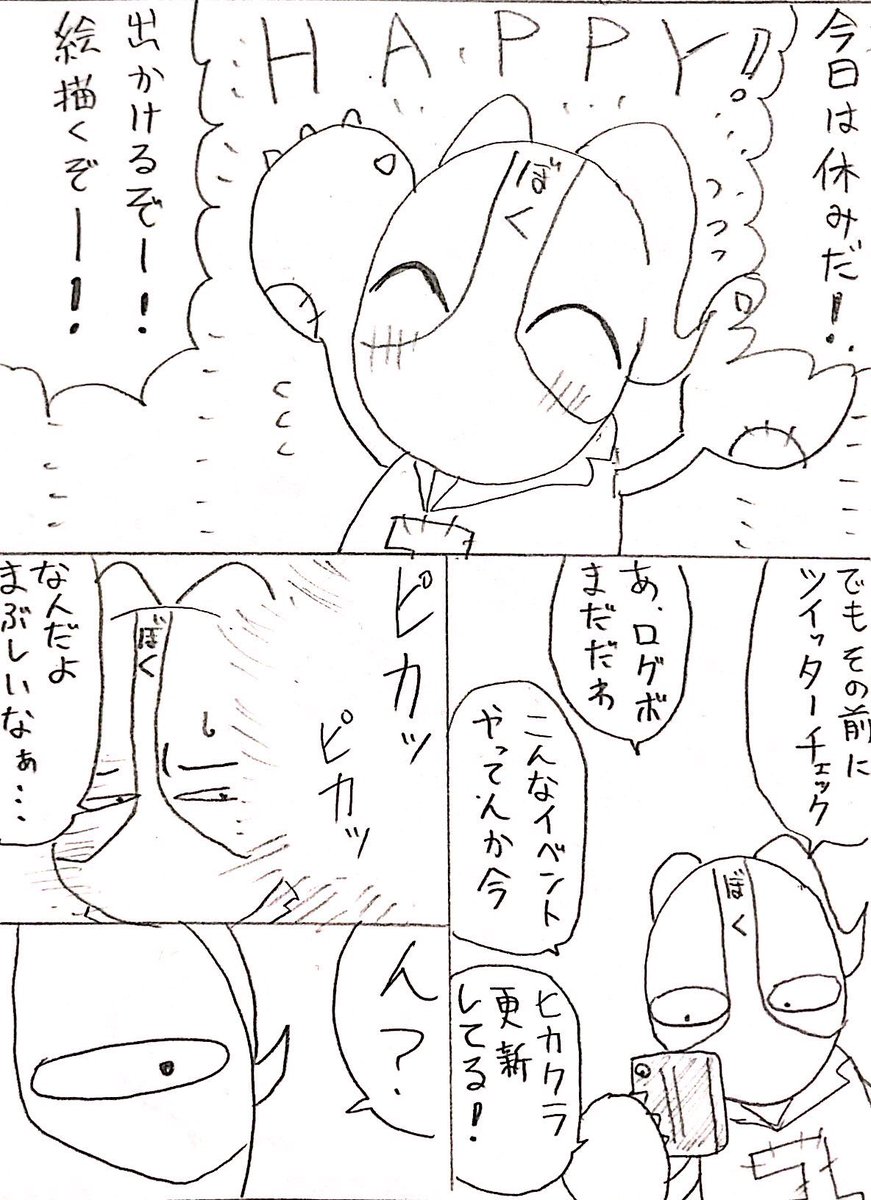 今日は休みだ!
HAPPY!!
ぼく
出かけるぞー!
絵描くぞー!
でもその前に
ツイッターチェック
あ、ログボ
まだだわ
こんなイベント
やってんか今
ヒカクラ
更新
してる!
ぼく
ピカッ
ピカッ
ぼく
なんだよ
まぶしいなぁ…
ん?